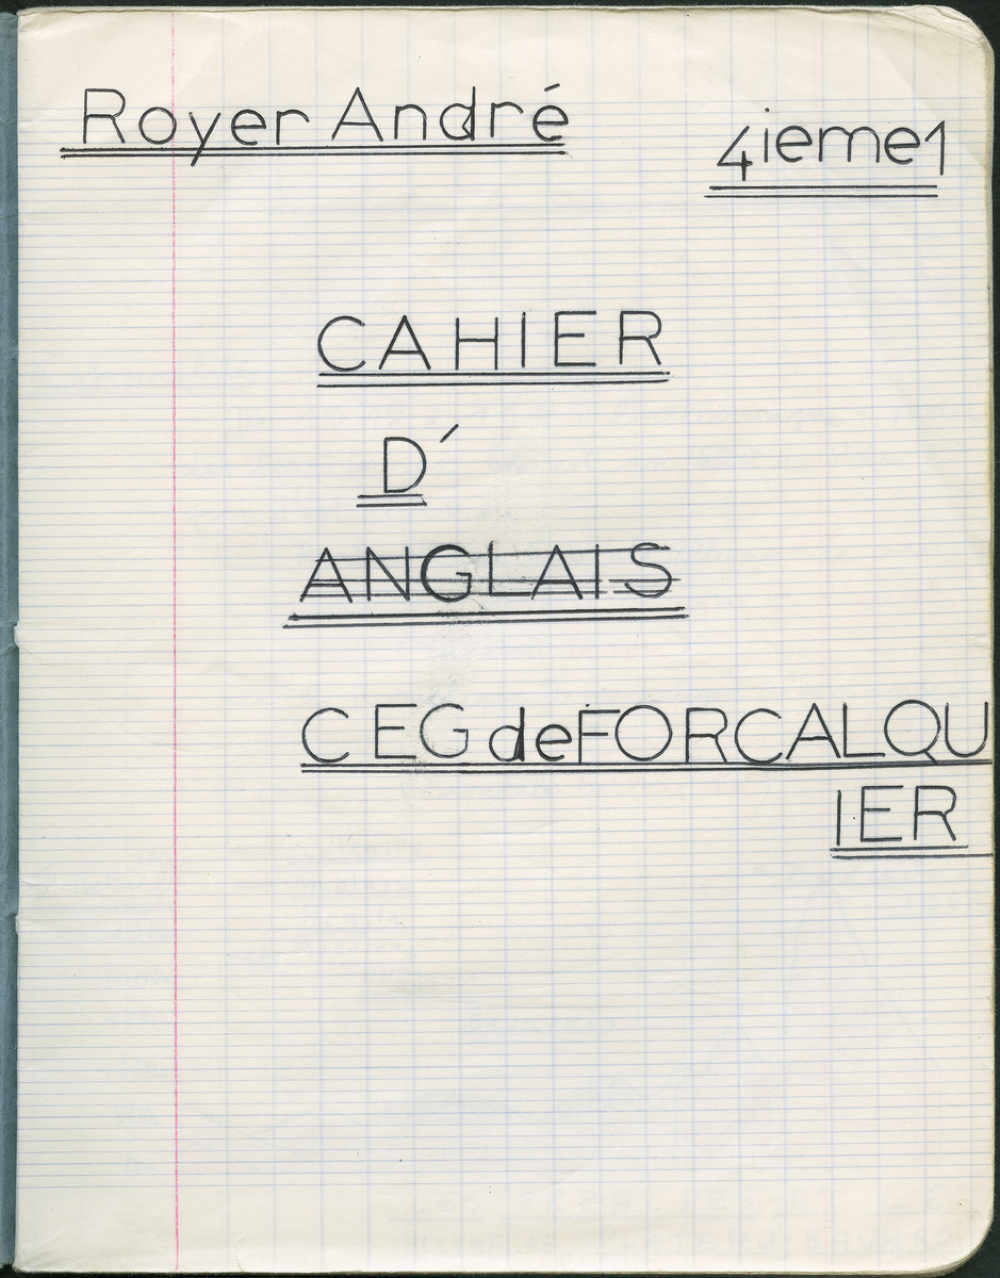 Royer André
4ieme1
CAHIER
D'
ANGLAIS
CEG de FORCALQU
IER